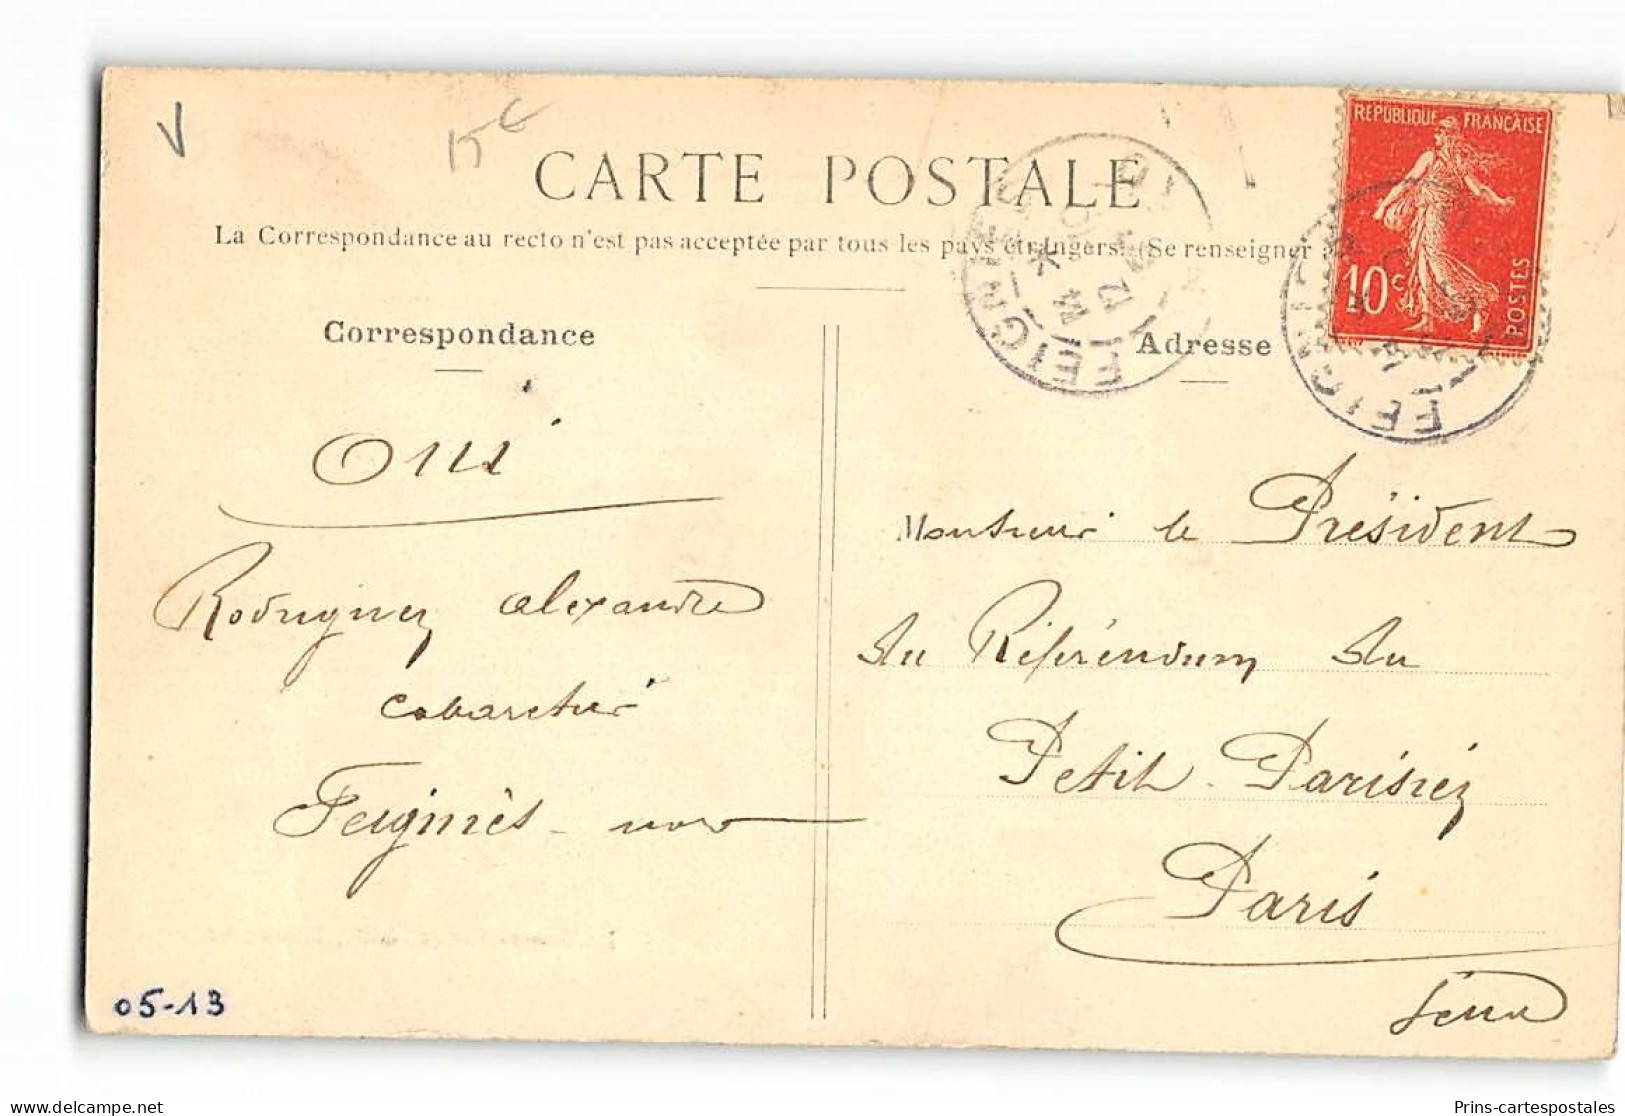 V
15€
CARTE POSTALE
La Correspondance au recto n'est pas acceptée par tous les pays étrangers. (Se renseigner à
REPUBLIQUE FRANÇAISE
10c
POSTES
FEIGNIES
FEIGNIES
Correspondance
Oui
Rodriguez alexandre
Cabaretier
Feignies - nord
Adresse
Monsieur le Président
du Référendum du
Petit-Parisien
Paris
Seine
05-13
Prins-cartespostales
delcampe.net